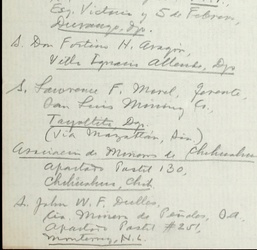 Esq. Victoria y 5 de Febrero,
Durango, Dgo.
S. Don Fortino H. Aragón,
Villa Ignacio Allende, Dgo
S. Lawrence F. Morel, Gerente,
San Luis Mining Co.
Tayoltita Dgo.
(Via Mazatlán, Sin)
Asociacion de Mineros de Chihuahua
Apartado Postal 130,
Chihuahua, Chih.
S. John W. F. Dulles,
Cia Minera de Peñoles, S.A.
Apartado Postal #251,
Monterrey, N.L.